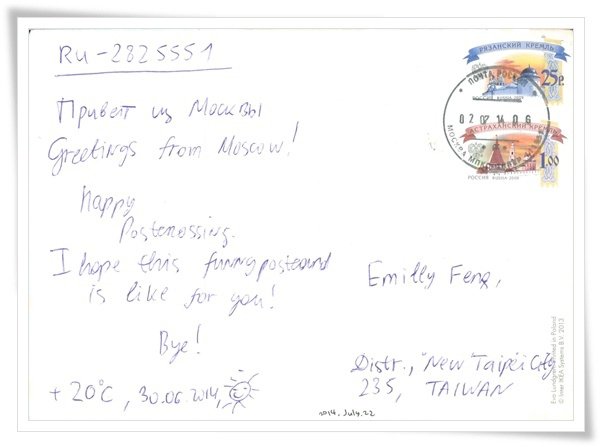 RU-2825551
Привет из Москвы
Greetings from Moscow!
Happy
Postcrossing.
I hope this funny postcard
is like for you!
Bye!
+20°C, 30.06.2014,
РЯЗАНСКИЙ КРЕМЛЬ
25р.
РОССИЯ RUSSIA 2009
ПОЧТА РОССИИ
02 07 14 06
МОСКВА
АСТРАХАНСКИЙ КРЕМЛЬ
1.00
РОССИЯ RUSSIA 2009
Emilly Feng,
Distr., New Taipei City
235, TAIWAN
2014. July. 22
Eva Lundgreen Printed in Poland
© Inter IKEA Systems B.V. 2013